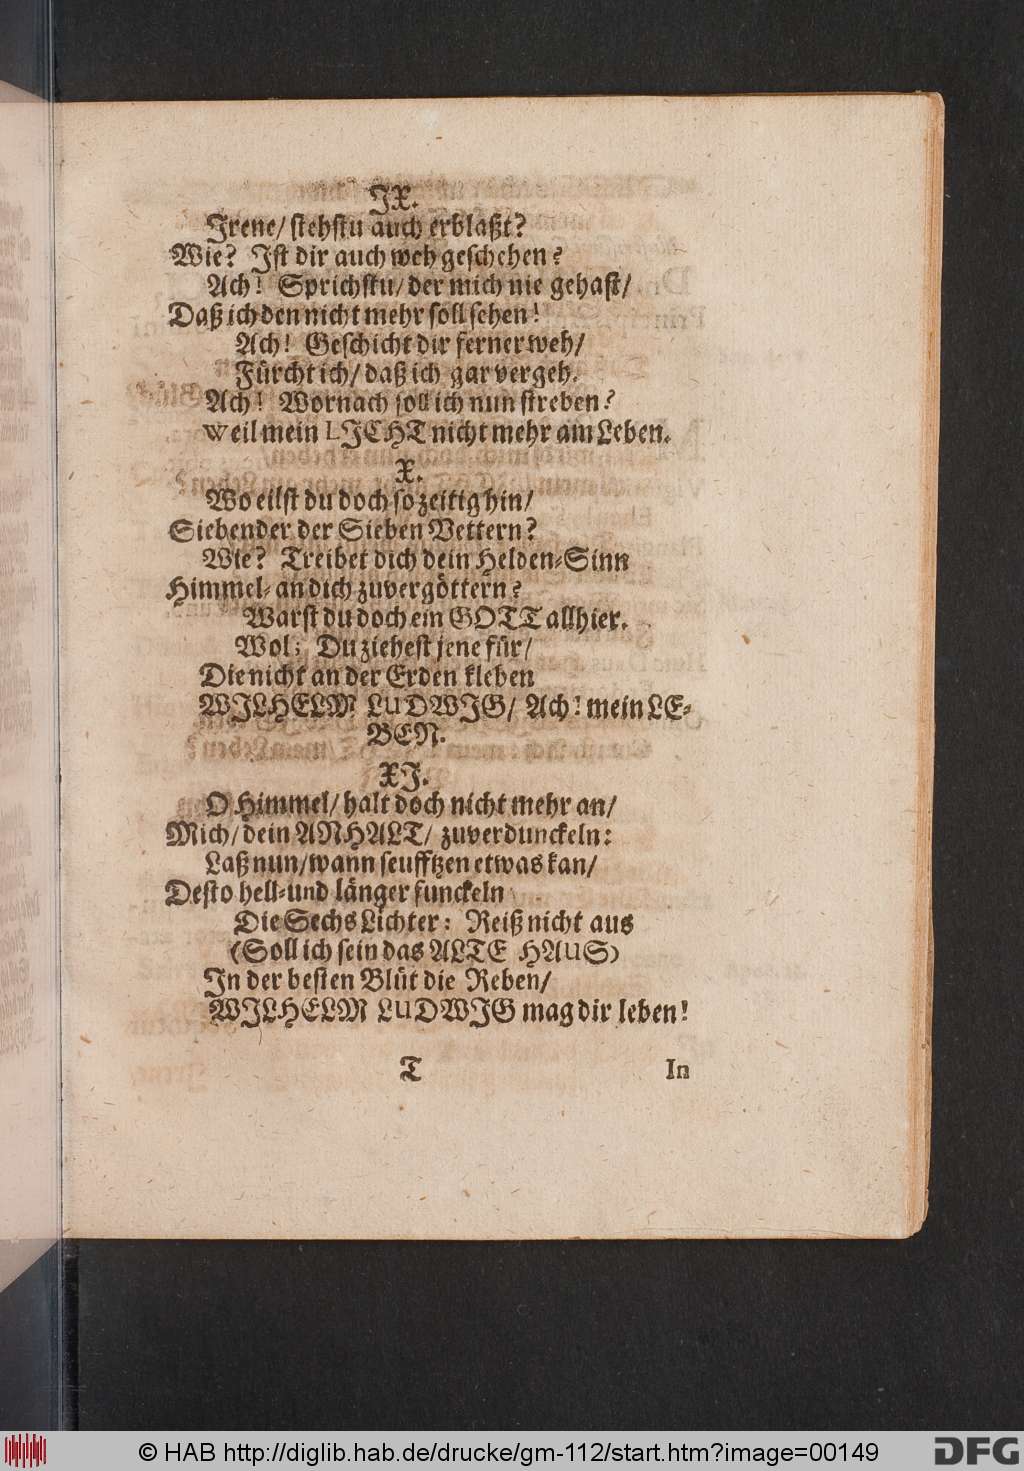 IX.
Irene/ stehstu auch erblaßt?
Wie? Ist dir auch weh geschehen?
Ach! Sprichstu/ der mich nie gehast/
Daß ich den nicht mehr soll sehen!
Ach! Geschicht dir ferner weh/
Fürcht ich/ daß ich gar vergeh.
Ach! Wornach soll ich nun streben?
weil mein LICHT nicht mehr am Leben.
X.
Wo eilst du doch so zeitig hin/
Siebender der Sieben Vettern?
Wie? Treibet dich dein Helden-Sinn
Himmel-an dich zuvergöttern?
Warst du doch ein GOTT allhier.
Wol; Du ziehest jene für/
Die nicht an der Erden kleben
WILHELM LUDWIG/ Ach! mein LE-
BEN.
XI.
O Himmel/ halt doch nicht mehr an/
Mich/ dein ANHALT/ zuverdunckeln:
Laß nun/ wann seufftzen etwas kan/
Desto hell-und länger funckeln
Die Sechs Lichter: Reiß nicht aus
(Soll ich sein das ALTE HAUS)
In der besten Blüt die Reben/
WILHELM LUDWIG mag dir leben!
T In
© HAB http://diglib.hab.de/drucke/gm-112/start.htm?image=00149
DFG